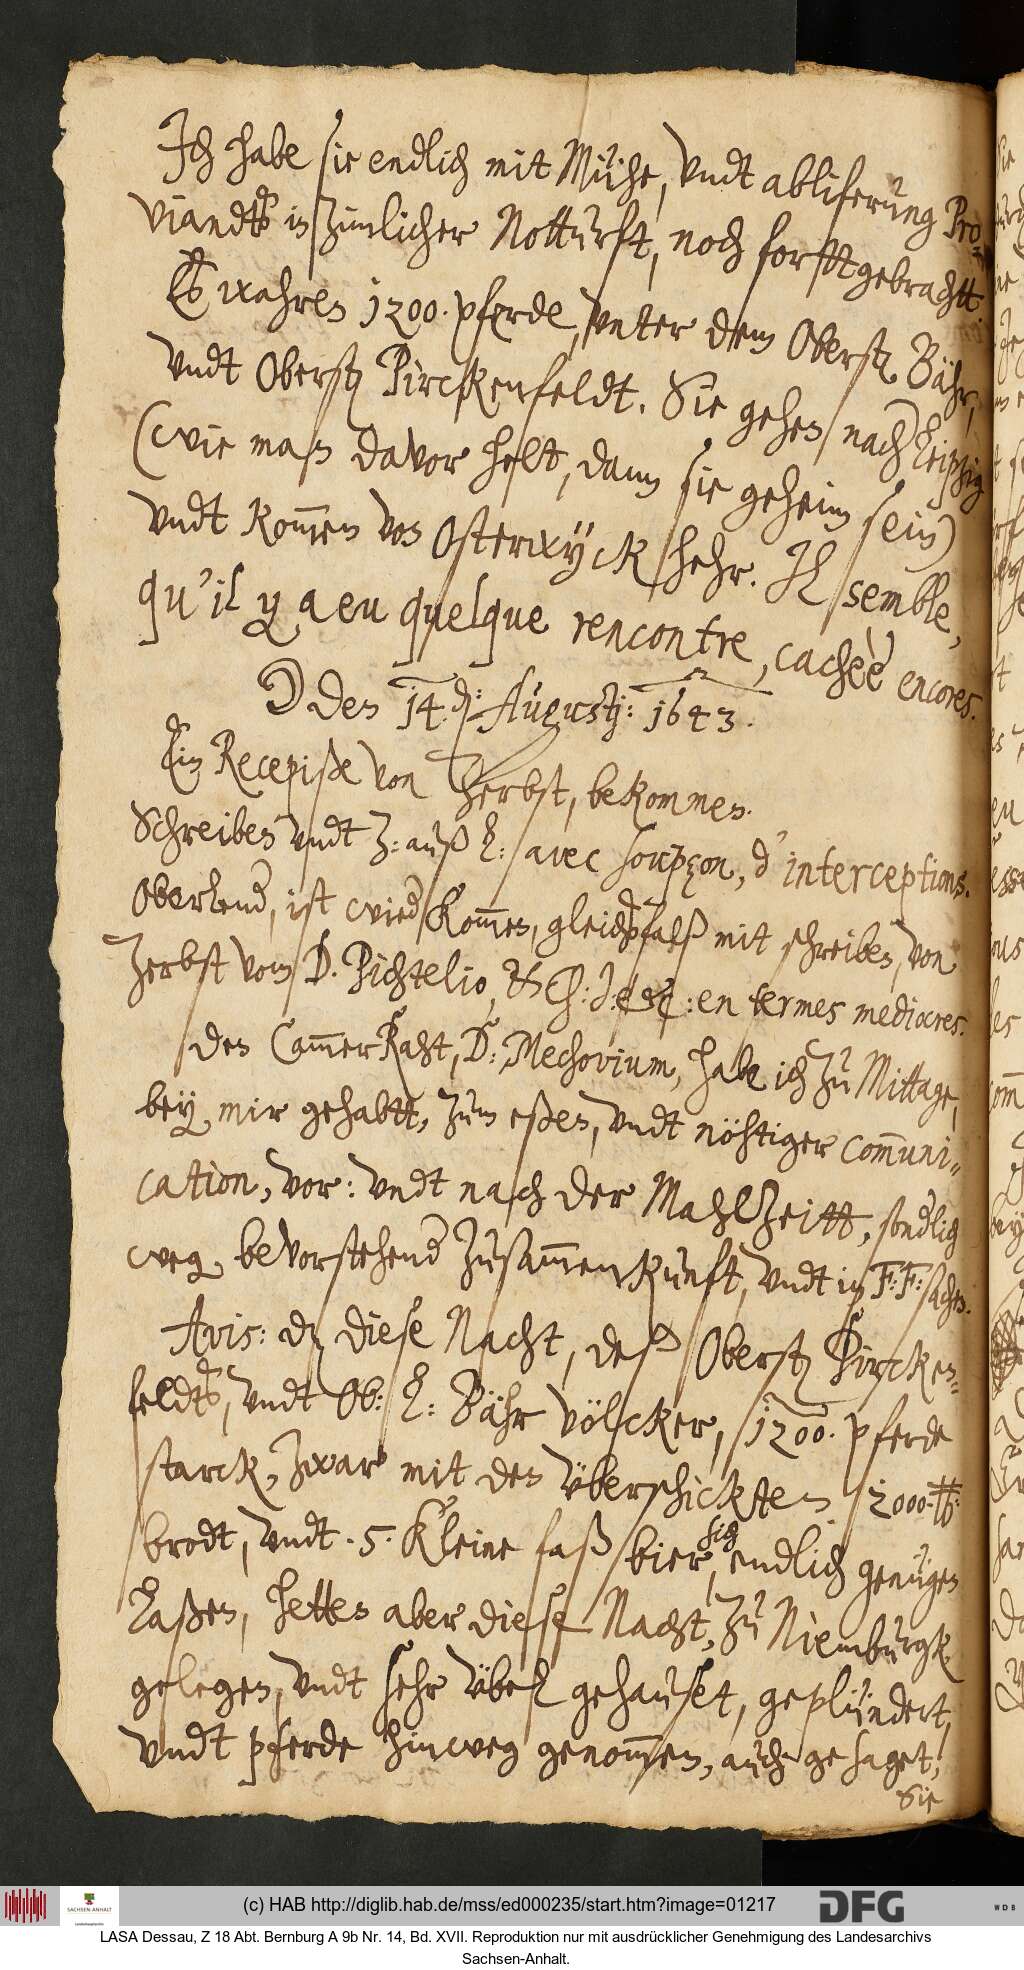 Ich habe sie endlich mit Mühe, vndt abliferung Pro-
viandts in zimlicher Notturft, noch forttgebrachtt.
Es wahren 1200. pferde, vnter dem Oberst Bähr,
vndt Oberst Pirckenfeldt. Sie gehen nach Leiptzig
(wie man davor helt, dann sie geheim sein)
vndt kommen von Osterwyck hehr. Il semble,
qu'il y a eu quelque rencontre, cachèe encores.
Den 14.den: Augustj: 1643.
Ein Recepiße von Zerbst, bekommen.
Schreiben vndt Z: auß L: avec soupçon, d'interceptions.
Oberlend, ist wied kommen, gleichsfalß mit schreiben, von
Zerbst vom D. Pichtelio, en termes mediocres.
Den CammerRaht, D: Mechovium, habe ich zu Mittage,
bey mir gehabtt, zum eßen, vndt nöhtiger communi-
cation, vor: vndt nach der Mahlzeitt, sondlich
weg bevorstehend Zusammenkunft, vndt in F: F: sachen.
Avis: dz diese Nacht, deß Oberst Pircken-
feldts, vndt Ob: L: Bähr völcker, 1200. pferde
starck, zwar mit den vberschickten 2000 lb:
brodt, vndt .5. kleine faß bier, sich endlich genügen
Laßen, hetten aber diese Nacht, zu Niemburgk
gelegen, vndt sehr vbel gehauset, geplündert,
vndt pferde hinweg genommen, auch gesaget,
Sie
(c) HAB http://diglib.hab.de/mss/ed000235/start.htm?image=01217
SACHSEN-ANHALT
DFG
WDB
LASA Dessau, Z 18 Abt. Bernburg A 9b Nr. 14, Bd. XVII. Reproduktion nur mit ausdrücklicher Genehmigung des Landesarchivs
Sachsen-Anhalt.